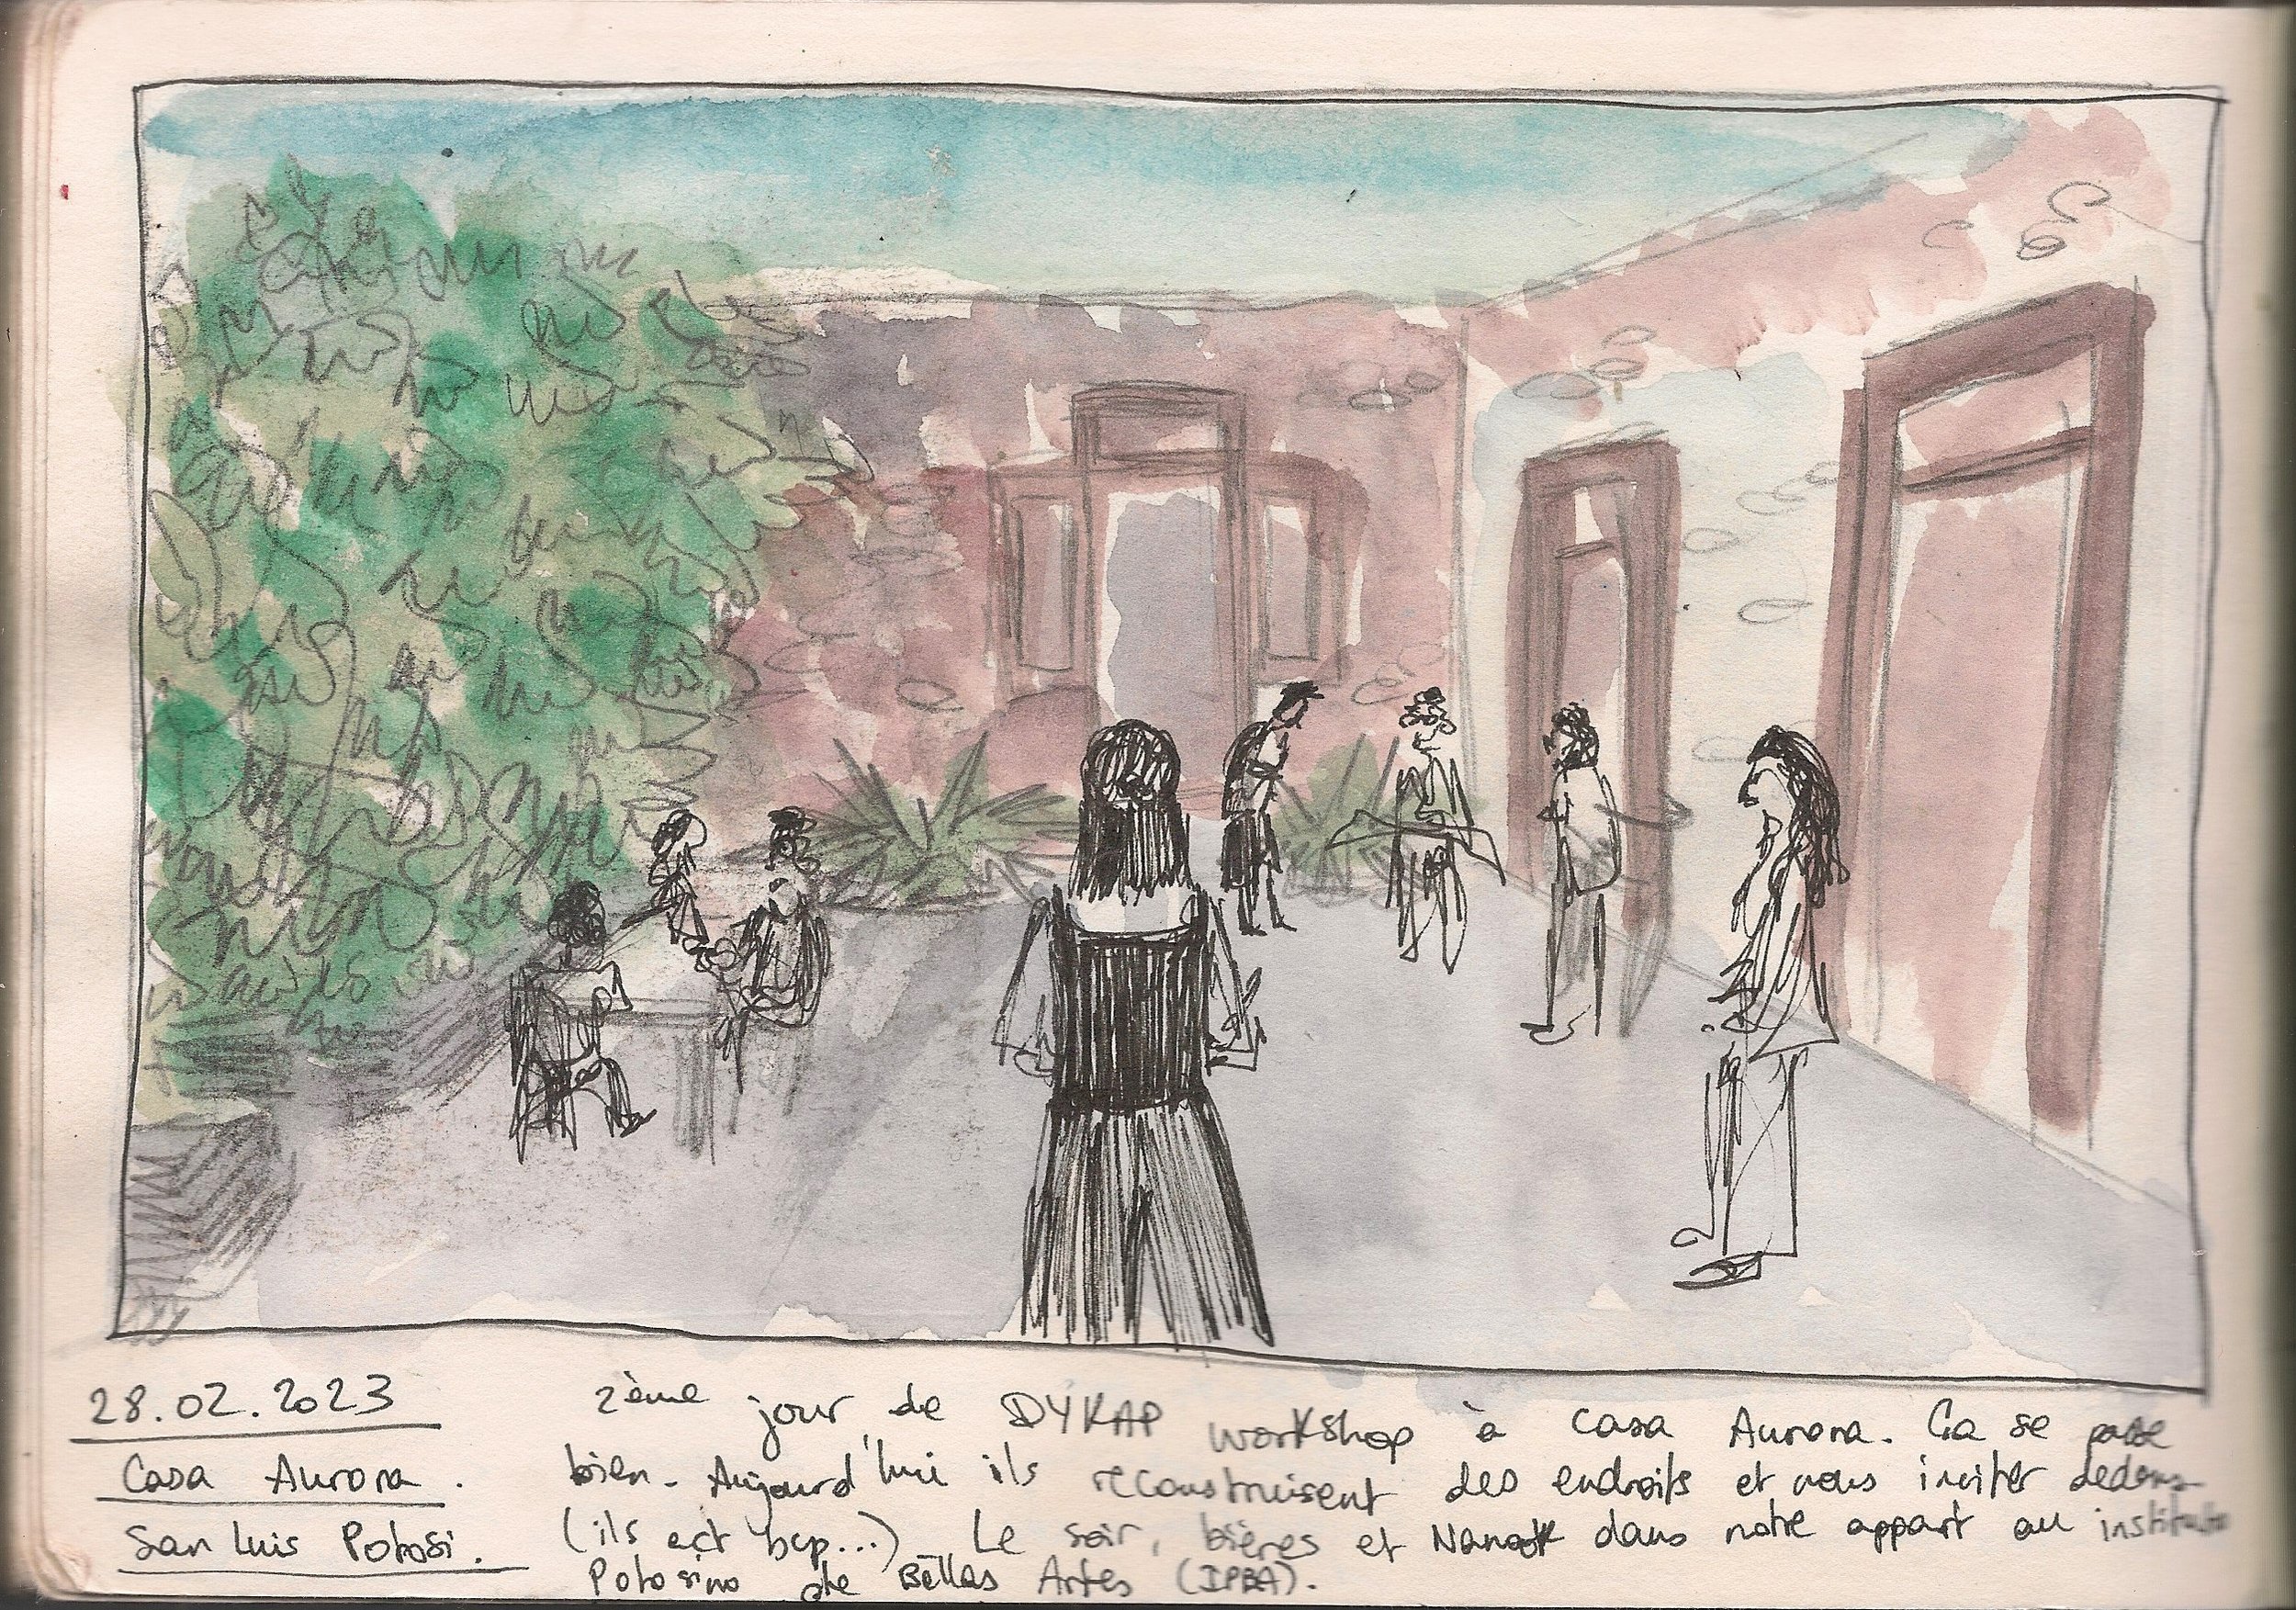 28.02.2023
Casa Aurora.
San Luis Potosi.
2ème jour de DYKAP workshop à casa Aurora. Ca se passe
bien. Aujourd'hui ils reconstruisent des endroits et nous inviter dedans
(ils ect bcp...) Le soir, bières et Nanook dans notre appart au instituto
Potosino de Bellas Artes (IPBA).